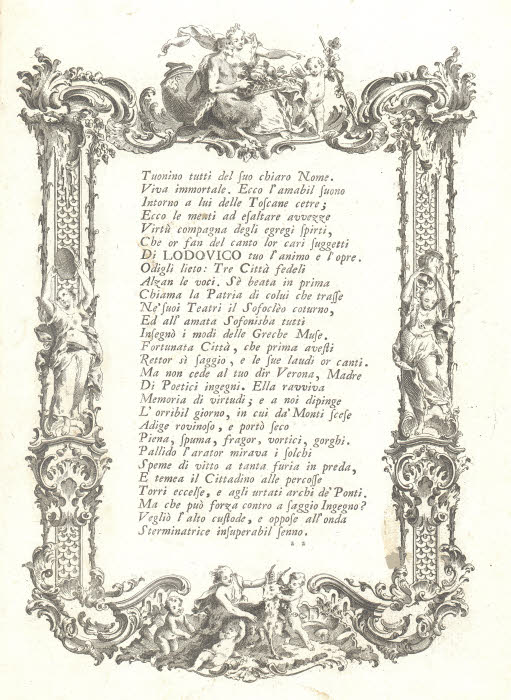 Tuonino tutti del ſuo chiaro Nome.
Viva immortale. Ecco l'amabil ſuono
Intorno a lui delle Toſcane cetre;
Ecco le menti ad eſaltare avvezze
Virtù compagna degli egregi ſpirti,
Che or fan del canto lor cari ſuggetti
Di LODOVICO tuo l'animo e l'opre.
Odigli lieto: Tre Città fedeli
Alzan le voci. Sè beata in prima
Chiama la Patria di colui che traſſe
Ne' ſuoi Teatri il Sofoclèo coturno,
Ed all' amata Sofonisba tutti
Inſegnò i modi delle Greche Muſe.
Fortunata Città, che prima aveſti
Rettor sì ſaggio, e le ſue laudi or canti.
Ma non cede al tuo dir Verona, Madre
Di Poetici ingegni. Ella ravviva
Memoria di virtudi; e a noi dipinge
L' orribil giorno, in cui da' Monti ſceſe
Adige rovinoſo, e portò ſeco
Piena, ſpuma, fragor, vortici, gorghi.
Pallido l'arator mirava i ſolchi
Speme di vitto a tanta furia in preda,
E temea il Cittadino alle percoſſe
Torri eccelſe, e agli urtati archi de' Ponti.
Ma che può forza contro a ſaggio Ingegno?
Vegliò l'alto cuſtode, e oppoſe all'onda
Sterminatrice inſuperabil ſenno.